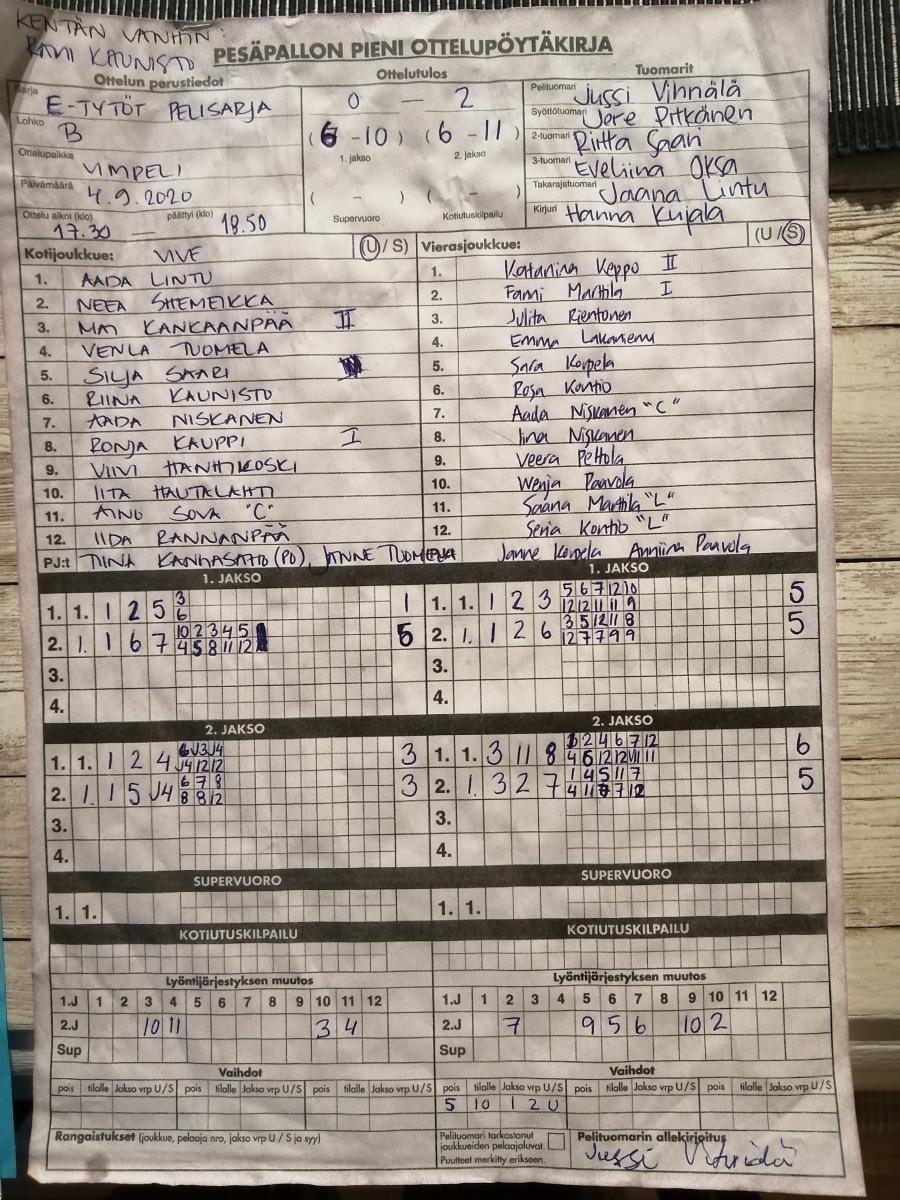 KENTÄN VANHIN:
RAMI KAUNISTO
PESÄPALLON PIENI OTTELUPÖYTÄKIRJA
Ottelun perustiedot
Sarja E-TYTÖT PELISARJA
Lohko B
Ottelupaikka VIMPELI
Päivämäärä 4.9.2020
Ottelu alkoi (klo) päättyi (klo)
17.30 — 18.50
Ottelutulos
0 — 2
(6 - 10) (6 - 11)
1. jakso 2. jakso
( - ) ( - )
Supervuoro Kotiutuskilpailu
Tuomarit
Pelituomari Jussi Vihnälä
Syöttötuomari Jere Pitkänen
2-tuomari Riitta Saari
3-tuomari Eveliina Oksa
Takarajatuomari Jaana Lintu
Kirjuri Hanna Kujala
Kotijoukkue: VIVE (U / S)
1. AADA LINTU
2. NEEA SHEMEIKKA
3. MAI KANKAANPÄÄ II
4. VENLA TUOMELA
5. SILJA SAARI
6. RIINA KAUNISTO
7. AADA NISKANEN
8. RONJA KAUPPI I
9. VIIVI HANHIKOSKI
10. IITA HAUTALAHTI
11. AINO SOVA "C"
12. IIDA RANNANPÄÄ
PJ:t TIINA KANHASAITO (PO), JANNE TUOMELA
Vierasjoukkue: (U / S)
1. Katariina Keppo II
2. Fanni Marttila I
3. Julita Rientonen
4. Emma Lakaniemi
5. Sara Korpela
6. Rosa Kontio
7. Aada Niskanen "C"
8. Iina Niskanen
9. Veera Peltola
10. Wenja Paavola
11. Saana Marttila "L"
12. Senja Kontio "L"
PJ:t Janne Korpela Anniina Paavola
1. JAKSO
1. 1. 1 2 5 3 1
6
2. 1. 1 6 7 10 2 3 4 5 5
4 5 8 11 12
3.
4.
1. JAKSO
1. 1. 1 2 3 5 6 7 12 10 5
12 12 11 11 9
2. 1. 1 2 6 3 5 12 11 8 5
12 7 7 9 9
3.
4.
2. JAKSO
1. 1. 1 2 4 6 J3 J4 3
J4 12 12
2. 1. 1 5 J4 6 7 8 3
8 8 12
3.
4.
2. JAKSO
1. 1. 3 11 8 2 4 6 7 12 6
4 6 12 12 11
2. 1. 3 2 7 1 4 5 11 7 5
4 11 7 12
3.
4.
SUPERVUORO
1. 1.
SUPERVUORO
1. 1.
KOTIUTUSKILPAILU
KOTIUTUSKILPAILU
Lyöntijärjestyksen muutos
1.J 1 2 3 4 5 6 7 8 9 10 11 12
2.J 10 11 3 4
Sup
Lyöntijärjestyksen muutos
1.J 1 2 3 4 5 6 7 8 9 10 11 12
2.J 7 9 5 6 10 2
Sup
Vaihdot
pois tilalle Jakso vrp U/S pois tilalle Jakso vrp U/S pois tilalle Jakso vrp U/S
Vaihdot
pois tilalle Jakso vrp U/S pois tilalle Jakso vrp U/S pois tilalle Jakso vrp U/S
5 10 1 2 U
Rangaistukset (joukkue, pelaaja nro, jakso vrp U / S ja syy)
Pelituomari tarkastanut
joukkueiden pelaajaluvat.
Puutteet merkitty erikseen.
Pelituomarin allekirjoitus
Jussi